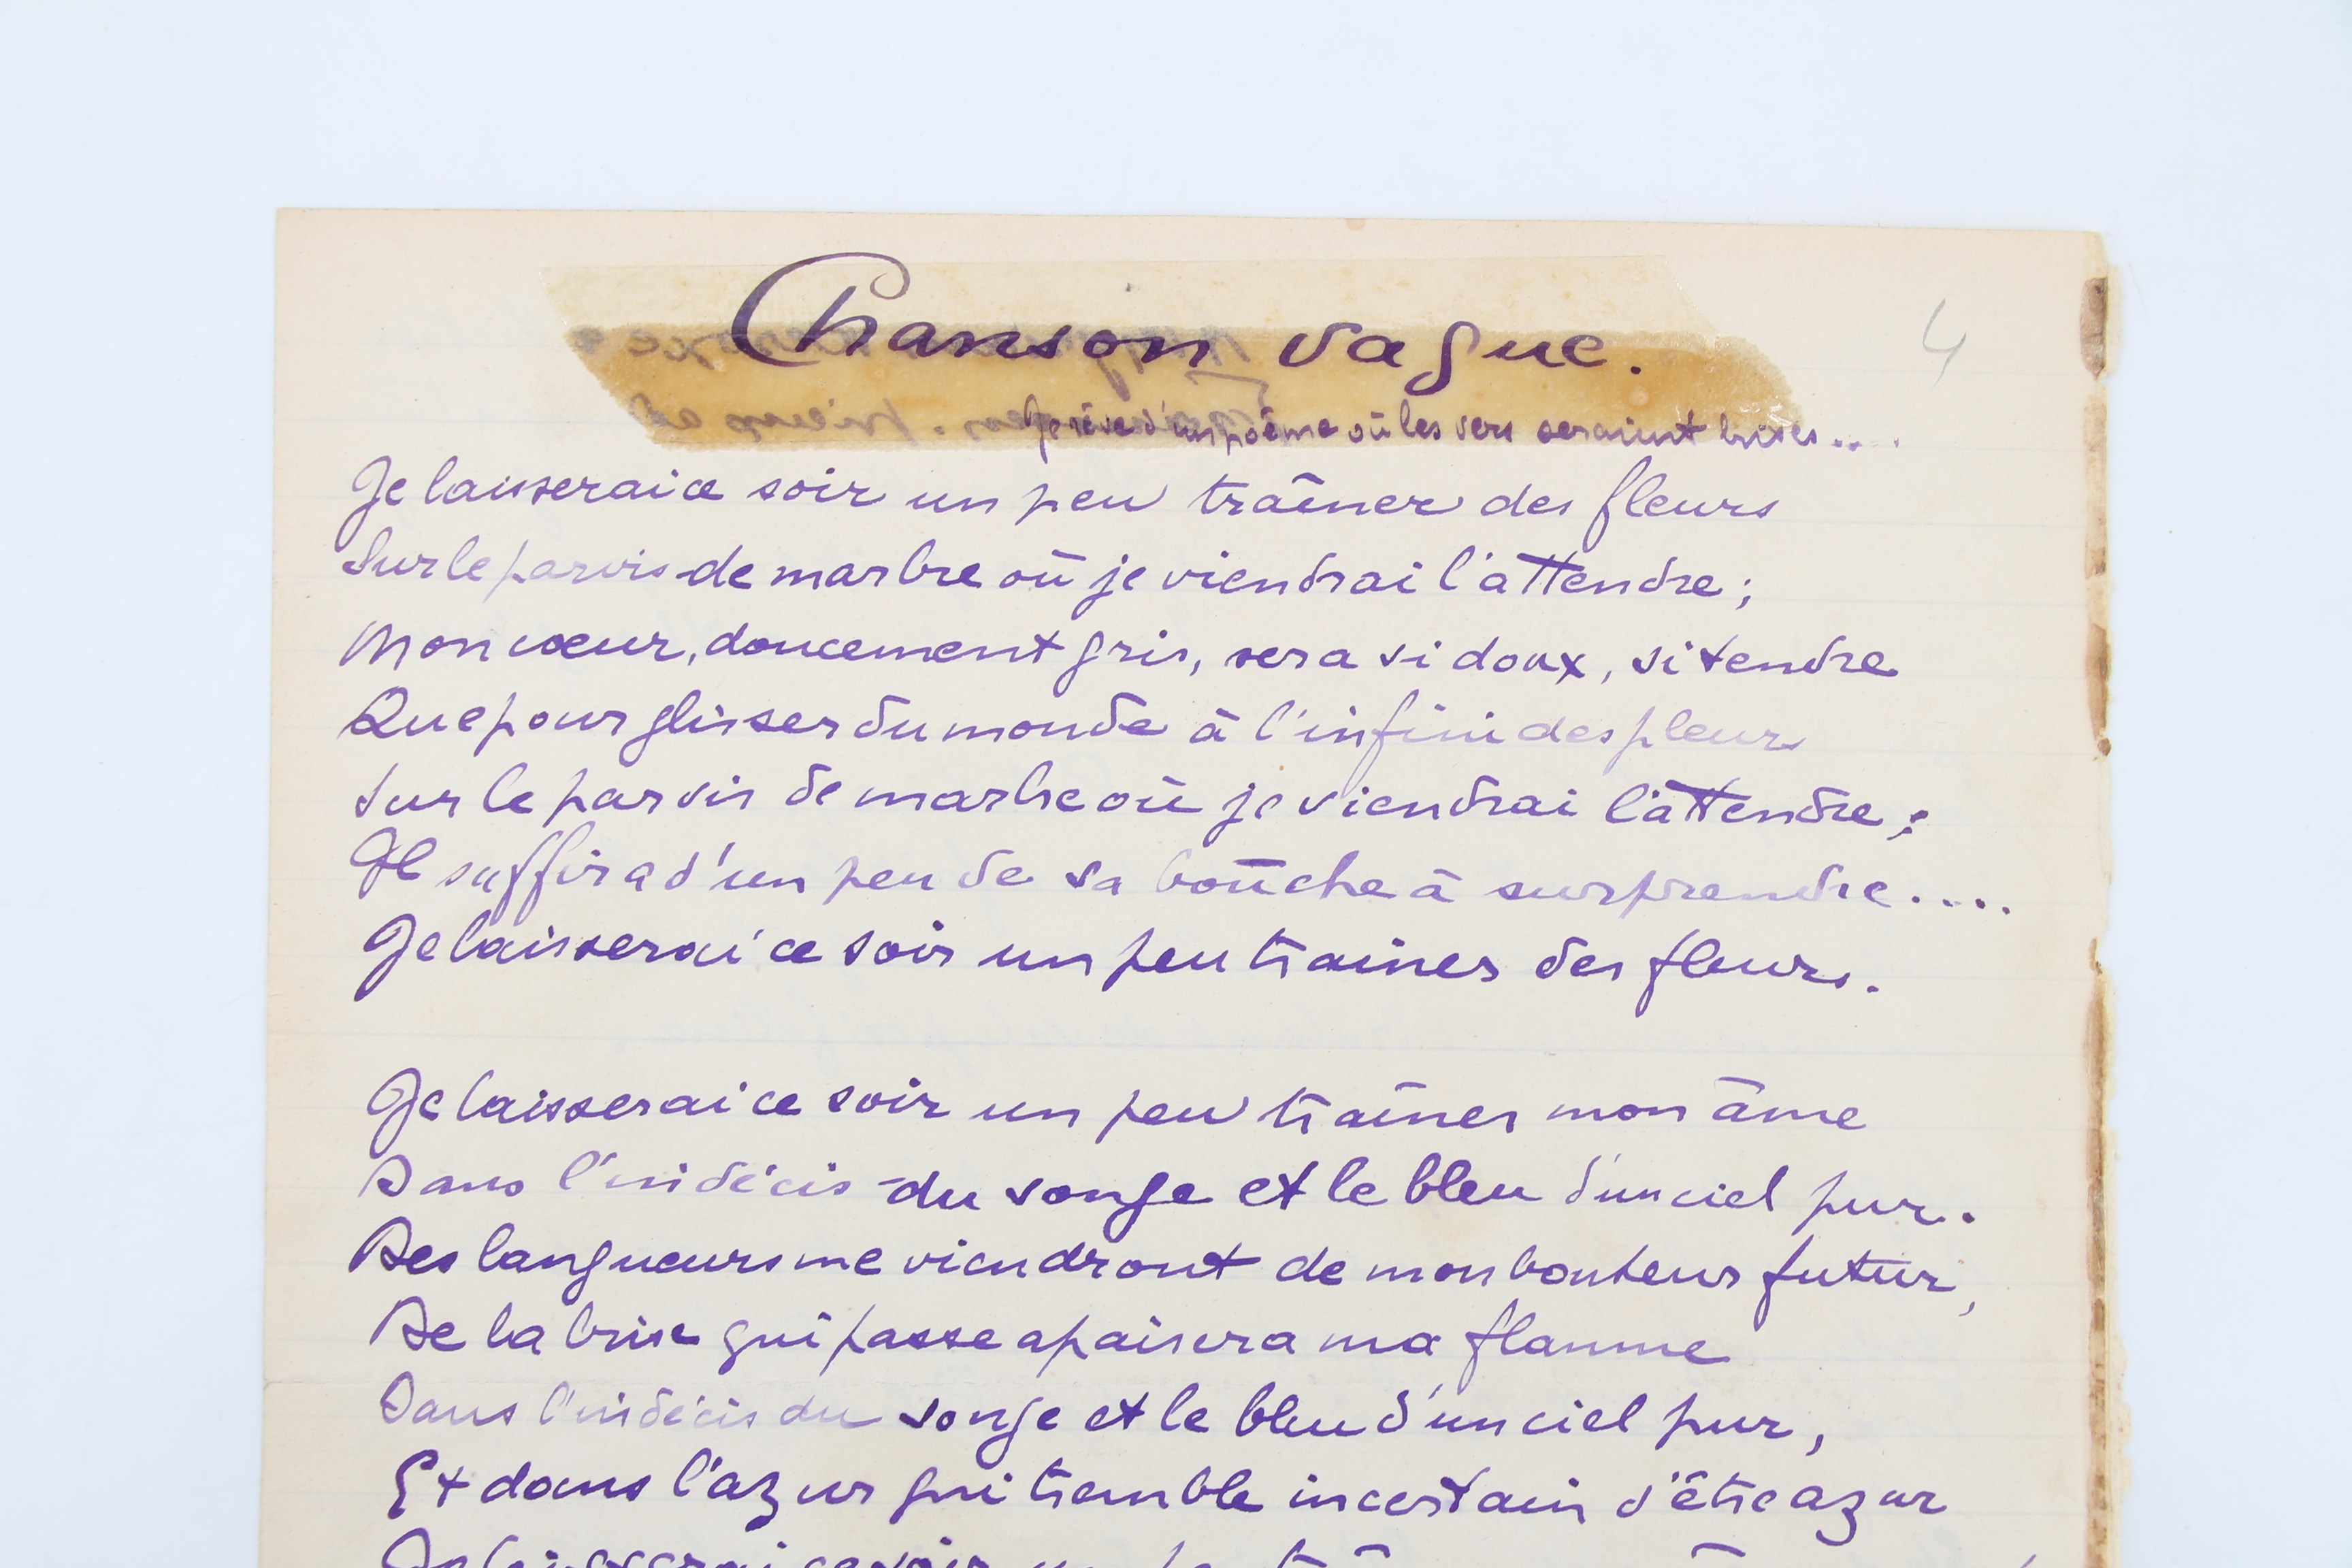 4
Chanson vague.
Je rêve d'un poème où les vers seraient brisés....
Je laisserai ce soir un peu traîner des fleurs
Sur le parvis de marbre où je viendrai l'attendre;
Mon cœur, doucement gris, sera si doux, si tendre
Que pour glisser du monde à l'infini des pleurs
Sur le parvis de marbre où je viendrai l'attendre;
Il suffira d'un peu de sa bouche à surprendre....
Je laisserai ce soir un peu traîner des fleurs.
Je laisserai ce soir un peu traîner mon âme
Dans l'indécis du songe et le bleu d'un ciel pur.
Des langueurs me viendront de mon bonheur futur,
De la brise qui passe apaisera ma flamme
Dans l'indécis du songe et le bleu d'un ciel pur,
Et dans l'azur qui tremble incertain d'être azur
Je laisserai ce soir un